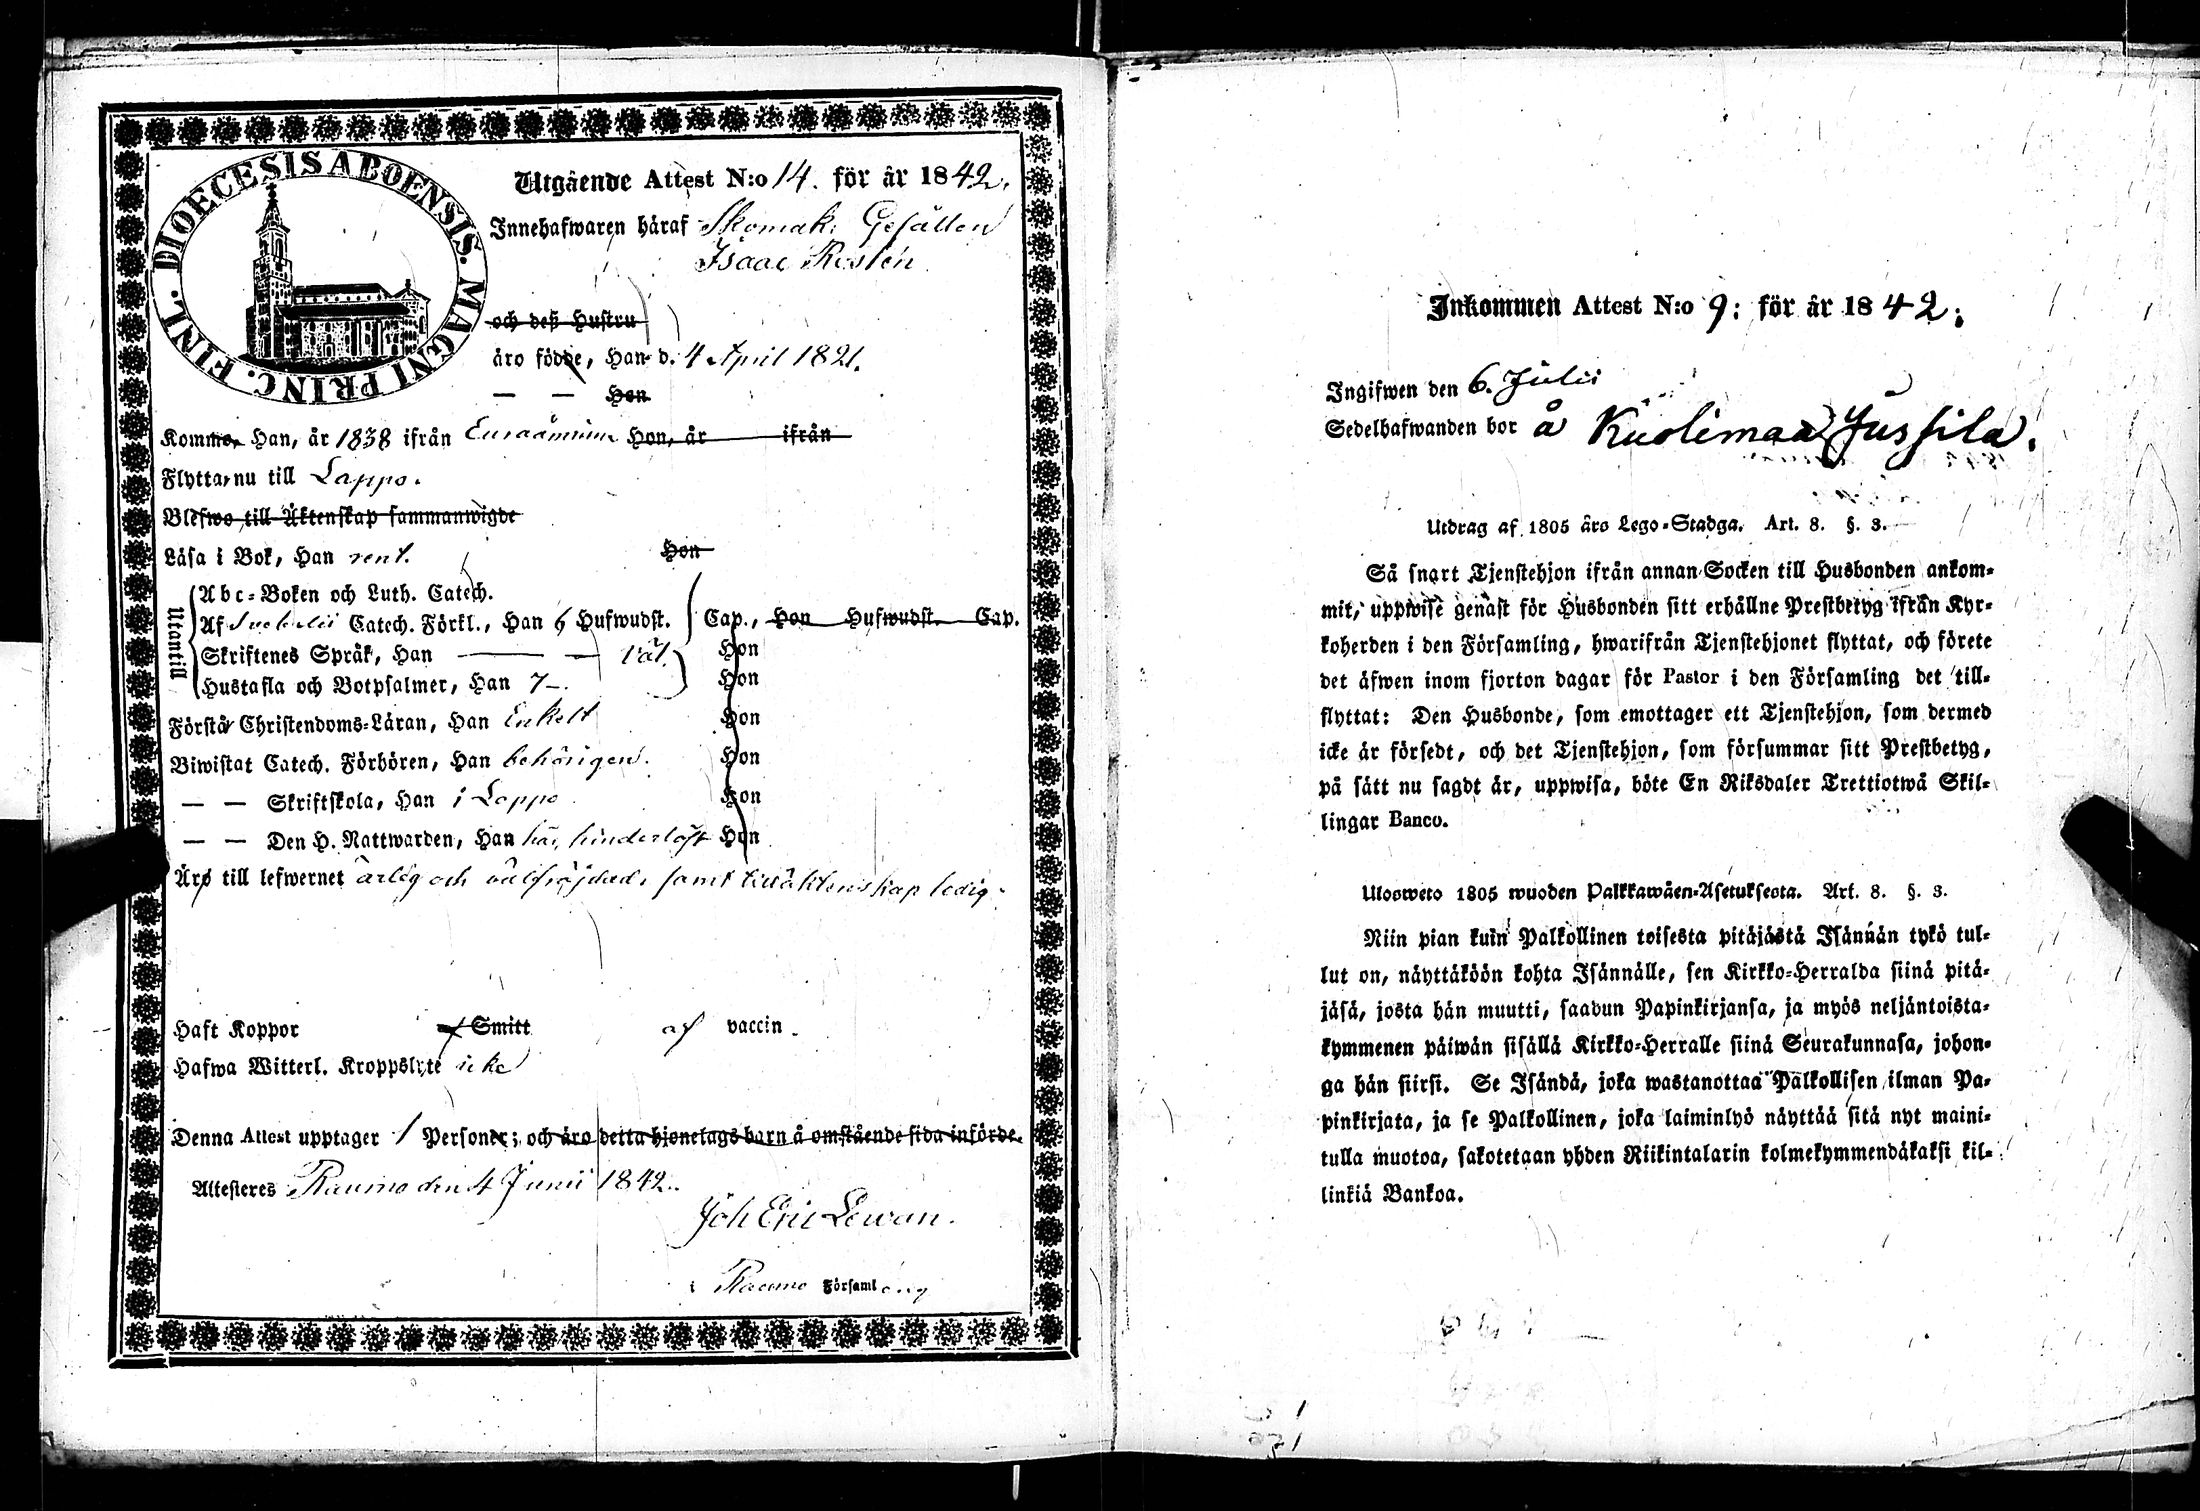 DIOECESIS ABOENSIS. MAGNI PRINC. FINL.
Utgående Attest N:o 14. för år 1842.
Innehafwaren häraf Skomak. Gesällen
Isaac Rostén
och deß Hustru
äro födde, Han d. 4 April 1821.
— — Hon
Komme, Han, år 1838 ifrån Euraåminne Hon, år ifrån
Flytta, nu till Lappo.
Blefwo till Äktenskap sammanwigde
Läsa i Bok, Han rent. Hon
Utantill
Abc-Boken och Luth. Catech.
Af Svebelii Catech. Förkl., Han 6 Hufwudst. Cap., Hon Hufwudst. Cap.
Skriftenes Språk, Han — — väl. Hon
Hustafla och Botpsalmer, Han 7 —. Hon
Förstå Christendoms-Läran, Han Enkelt Hon
Biwistat Catech. Förhören, Han behörigen. Hon
— — Skriftskola, Han i Lappo Hon
— — Den H. Nattwarden, Han här, hinderlöst Hon
Äro till lefwernet ärlig och välfräjdad, samt till äktenskap ledig.
Haft Koppor af Smitt af vaccin.
Hafwa Witterl. Kroppslyte icke
Denna Attest upptager 1 Personer; och äro detta hjonelags barn å omstående sida införde.
Attesteres Raumo den 4 Junii 1842.
Joh Eric Lewan.
i Raumo Församling
Inkommen Attest N:o 9: för år 1842.
Ingifwen den 6. Julii
Sedelhafwanden bor å Kuolimaa Jussila.
Utdrag af 1805 års Lego-Stadga. Art. 8. §. 3.
Så snart Tjenstehjon ifrån annan Socken till Husbonden ankom-
mit, uppwise genast för Husbonden sitt erhållne Prestbetyg ifrån Kyr-
koherden i den Församling, hwarifrån Tjenstehjonet flyttat, och förete
det äfwen inom fjorton dagar för Pastor i den Församling det till-
flyttat: Den Husbonde, som emottager ett Tjenstehjon, som dermed
icke är försedt, och det Tjenstehjon, som försummar sitt Prestbetyg,
på sätt nu sagdt är, uppwisa, böte En Riksdaler Trettiotwå Skil-
lingar Banco.
Ulosweto 1805 wuoden Palkkawäen-Asetuksesta. Art. 8. §. 3.
Niin pian kuin Palkollinen toisesta pitäjästä Isännän tykö tul-
lut on, näyttäköön kohta Isännälle, sen Kirkko-Herralda siinä pitä-
jäsä, josta hän muutti, saadun Papinkirjansa, ja myös neljäntoista-
kymmenen päiwän sisällä Kirkko-Herralle siinä Seurakunnasa, johon-
ga hän siirsi. Se Isändä, joka wastanottaa Palkollisen ilman Pa-
pinkirjata, ja se Palkollinen, joka laiminlyö näyttää sitä nyt maini-
tulla muotoa, sakotetaan yhden Riikintalarin kolmekymmendäkaksi kil-
linkiä Bankoa.